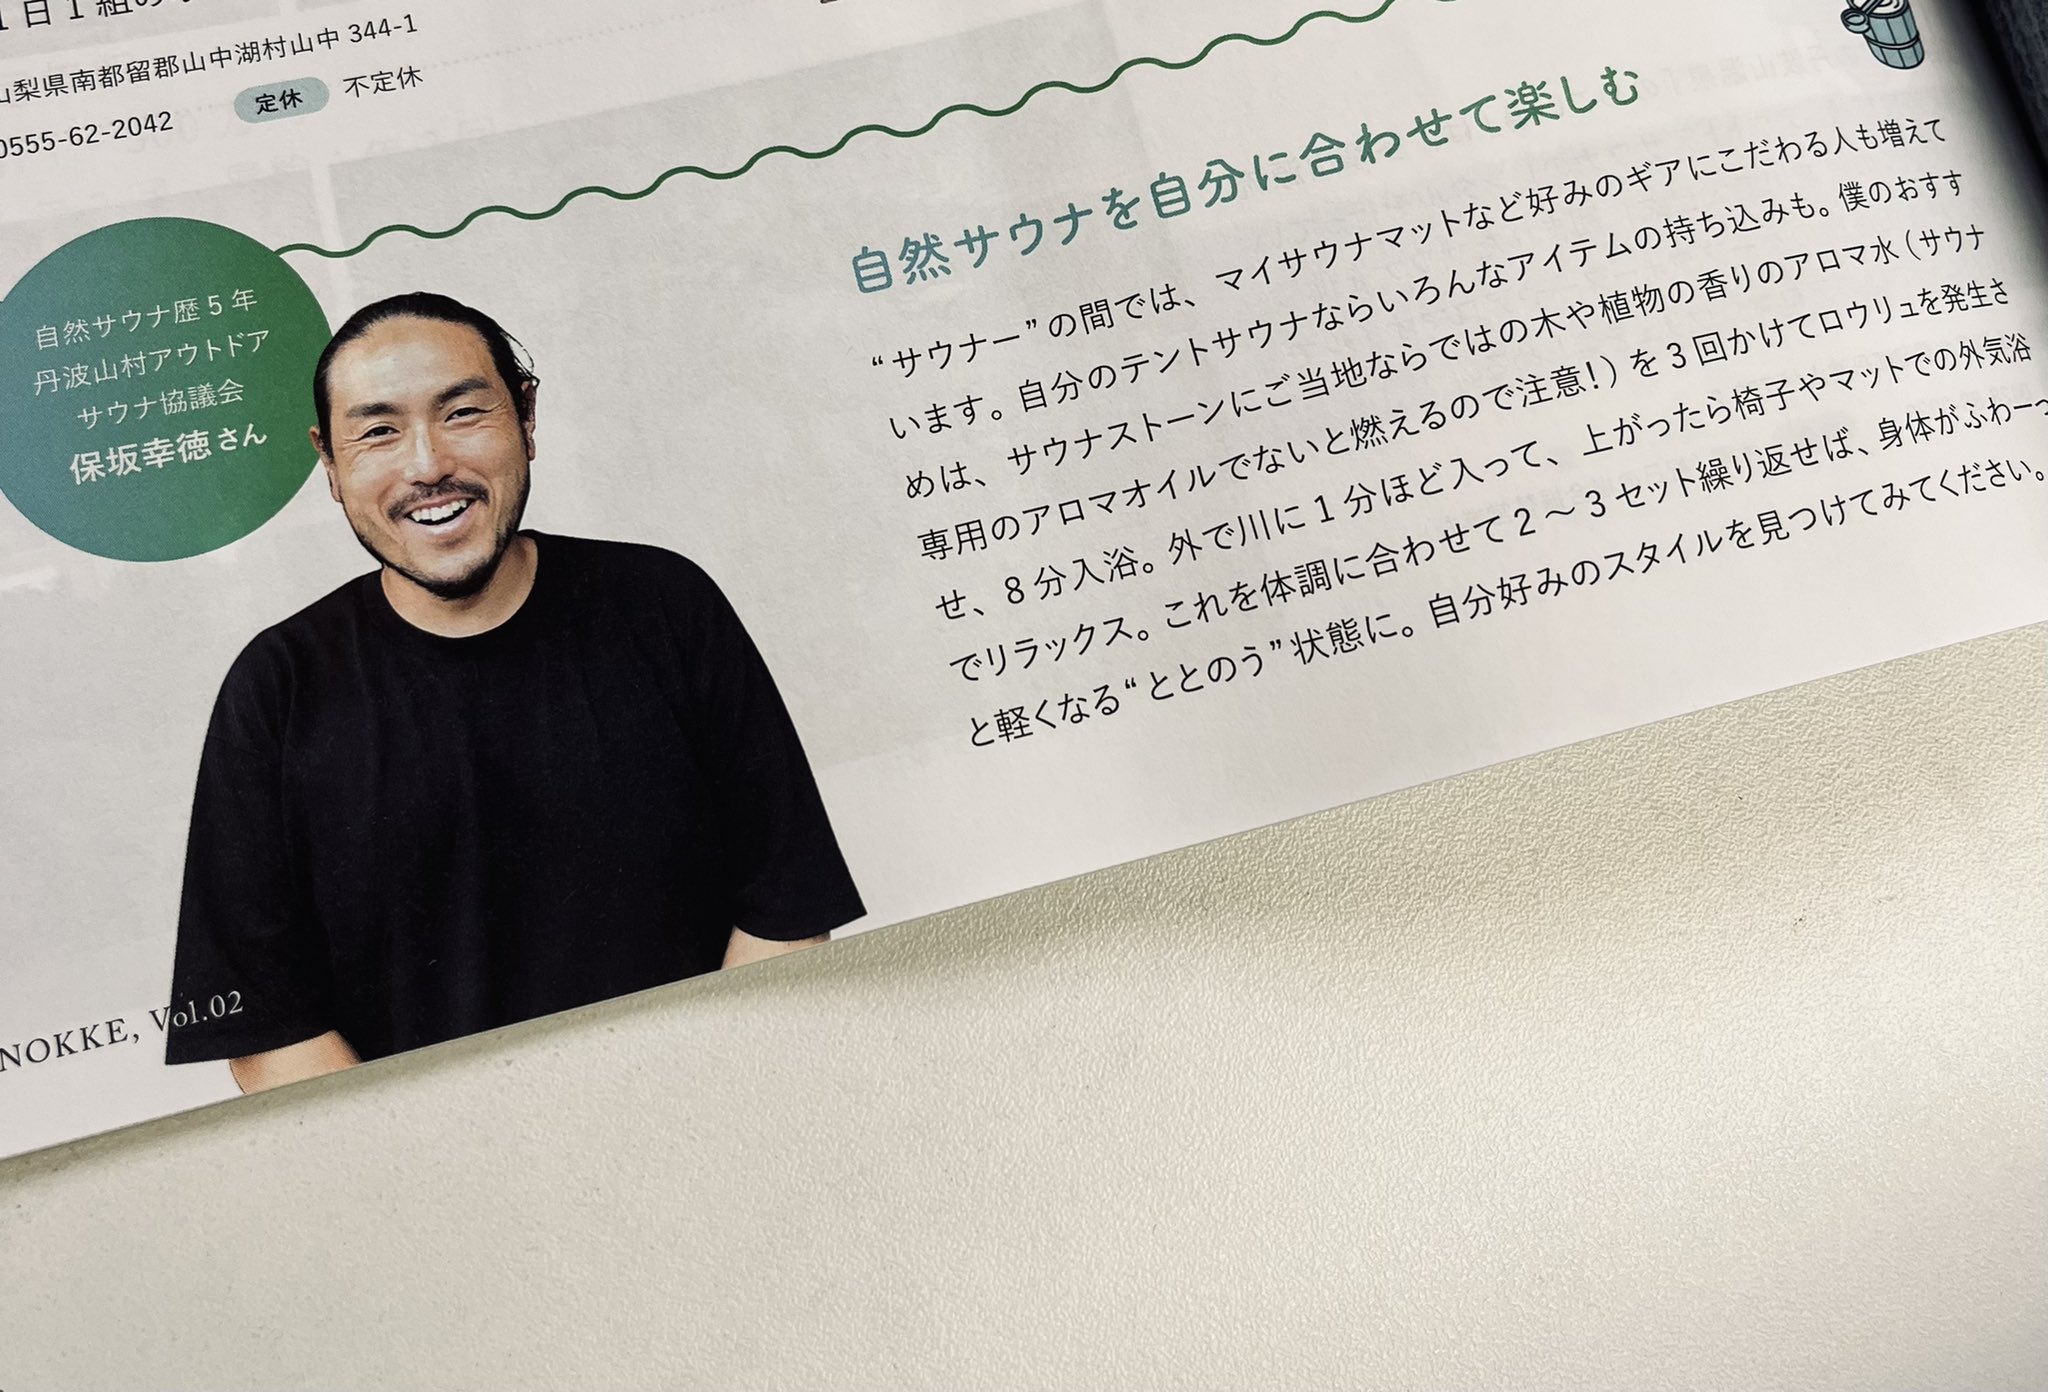 1日1組の
山梨県南都留郡山中湖村山中 344-1
0555-62-2042
定休 不定休
自然サウナ歴 5 年
丹波山村アウトドア
サウナ協議会
保坂幸徳さん
自然サウナを自分に合わせて楽しむ
“サウナー”の間では、マイサウナマットなど好みのギアにこだわる人も増えて
います。自分のテントサウナならいろんなアイテムの持ち込みも。僕のおすす
めは、サウナストーンにご当地ならではの木や植物の香りのアロマ水（サウナ
専用のアロマオイルでないと燃えるので注意！）を 3 回かけてロウリュを発生さ
せ、8 分入浴。外で川に 1 分ほど入って、上がったら椅子やマットでの外気浴
でリラックス。これを体調に合わせて 2 〜 3 セット繰り返せば、身体がふわーっ
と軽くなる“ととのう”状態に。自分好みのスタイルを見つけてみてください。
NOKKE, Vol.02